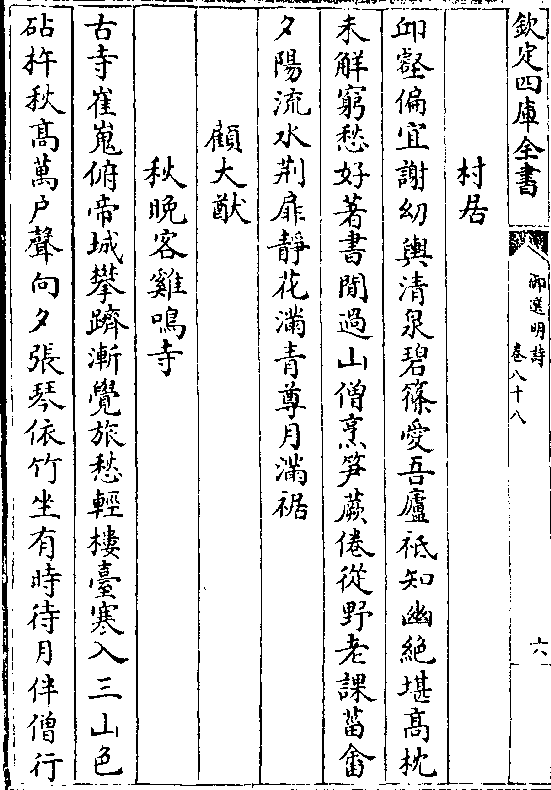 欽定四庫全書
御選明詩
卷八十八
六
村居
丘壑偏宜謝幼輿清泉碧篠愛吾廬祗知幽絶堪高枕
未解窮愁好著書閒過山僧烹筍蕨倦從野老課菑畬
夕陽流水荆扉靜花滿青尊月滿裾
顧大猷
秋晚客雞鳴寺
古寺崔嵬俯帝城攀躋漸覺旅愁輕樓臺寒入三山色
砧杵秋高萬户聲向夕張琴依竹坐有時待月伴僧行